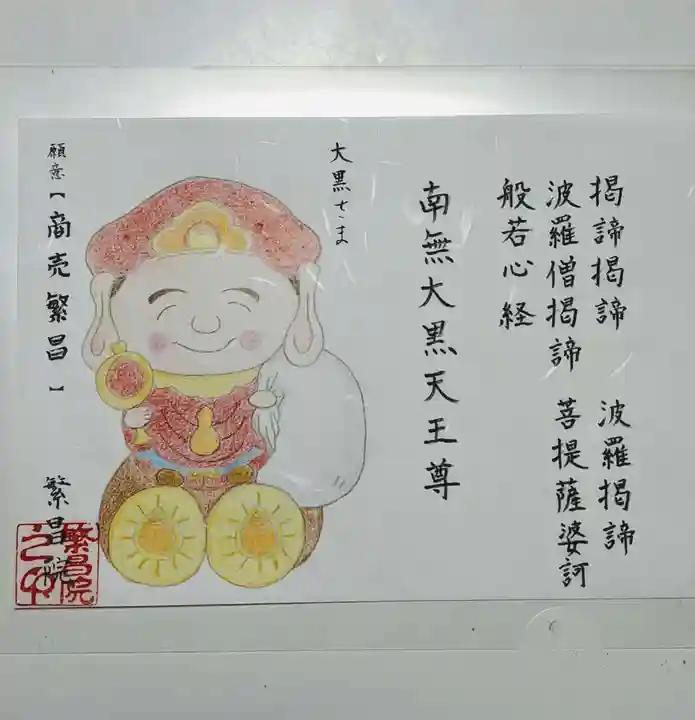 掲諦掲諦 波羅掲諦
波羅僧掲諦 菩提薩婆訶
般若心経
南無大黒天王尊
大黒さま
願意【商売繁昌】
繁昌院
繁昌院